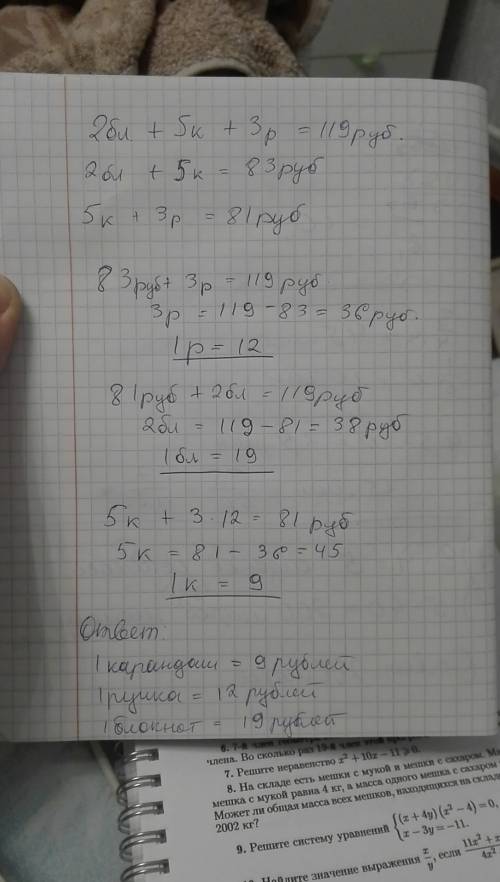 2бл + 5к + 3р = 119руб.
2бл + 5к = 83руб
5к + 3р = 81руб
83руб + 3р = 119руб
3р = 119 - 83 = 36руб.
1р = 12
81руб + 2бл = 119руб
2бл = 119 - 81 = 38руб
1бл = 19
5к + 3·12 = 81руб
5к = 81 - 36 = 45
1к = 9
Ответ:
1карандаш = 9рублей
1ручка = 12рублей
1блокнот = 19рублей
6. 7-й член
члена. Во сколько раз 19-й член этой
7. Решите неравенство x² + 10x - 11 ⩾ 0.
8. На складе есть мешки с мукой и мешки с сахаром.
мешка с мукой равна 4 кг, а масса одного мешка с сахаром
Может ли общая масса всех мешков, находящихся на
2002 кг?
9. Решите систему уравнений {(x + 4y)(x² - 4) = 0,
x - 3y = -11.
Найдите значение выражения x/y, если 11x² + x / 4x²